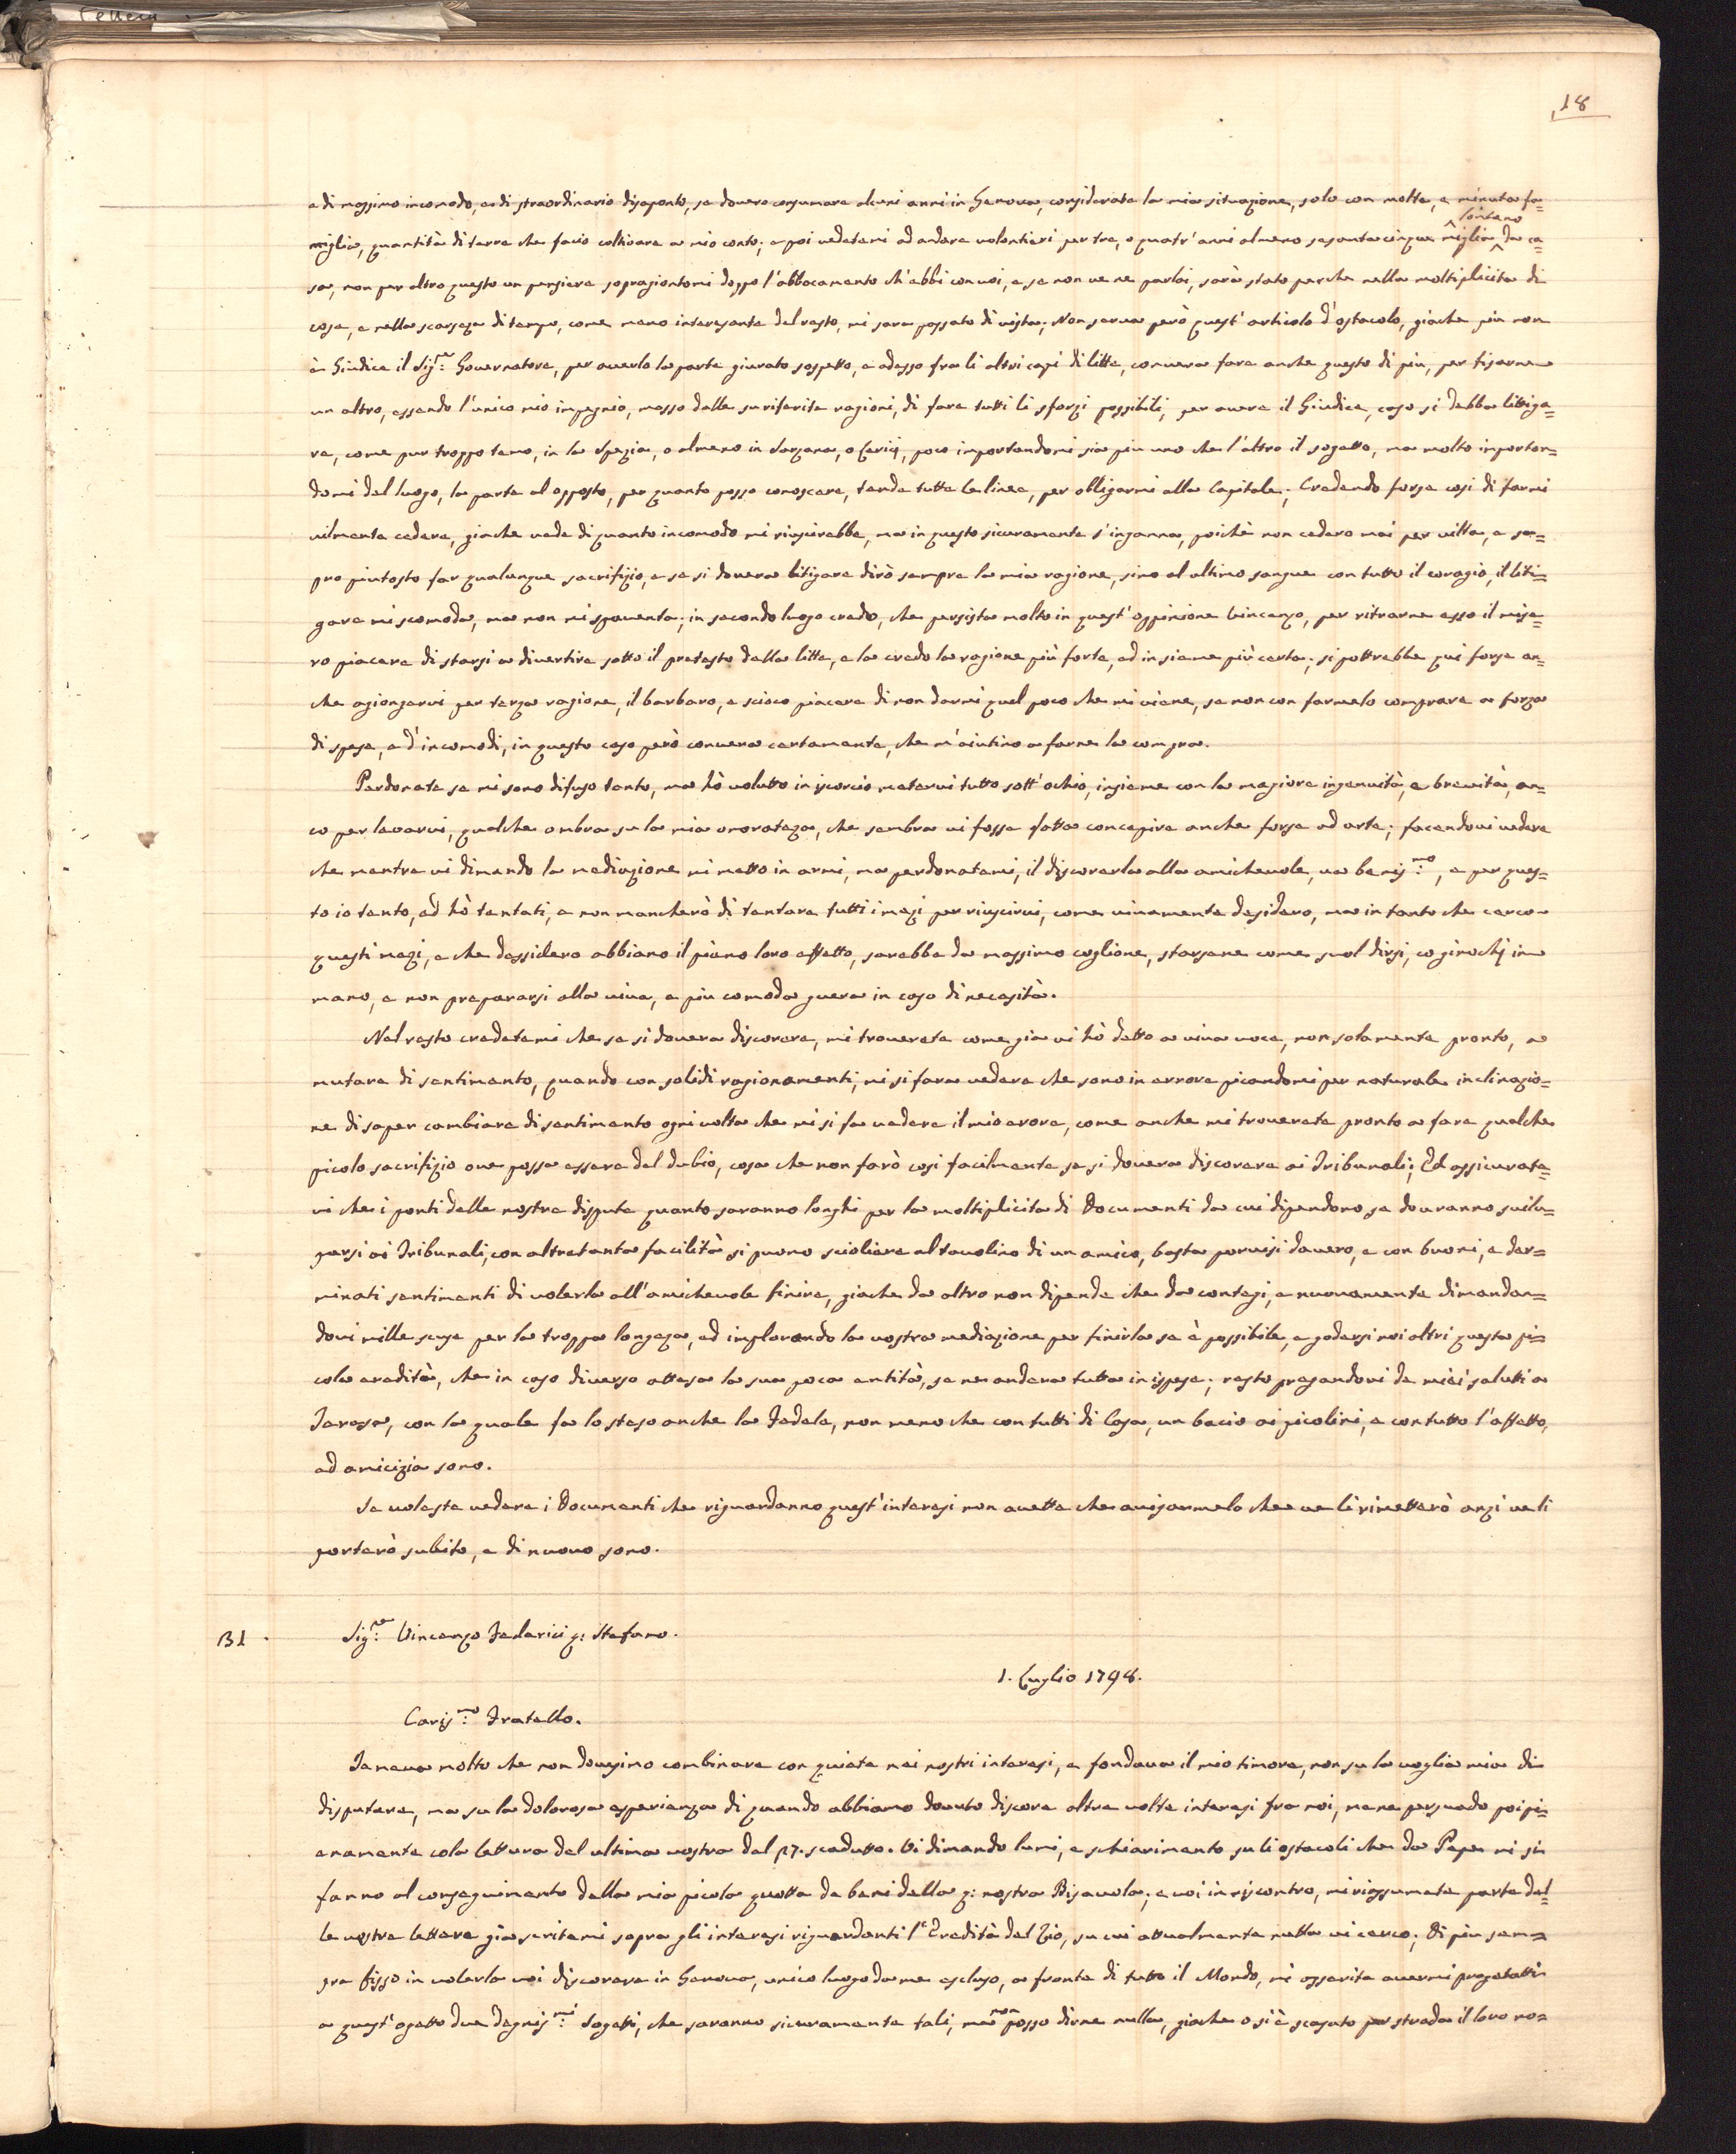 18
e di massimo incomodo, e di straordinario disaponto, se dovero consumare alcuni anni in Genova, considerata la mia situazione, solo con molta, e minuta fa=
miglia, quantità di terre che facio coltivare a mio conto; e poi vedetemi ad andare volontieri per tre, o quatr' anni almeno sesanta cinque miglia lontano da ca=
sa, non per altro questo un pensiere sopragiontomi doppo l'abbocamento ch'ebbi con voi, e se non ve ne parlai, sarà stato perche nella moltiplicita di
cose, e nella scarseza di tempo, come meno interesante del resto, mi sara passato di vista; Non serva però quest' articolo d'ostacolo, giache piu non
è Giudice il Sig.re Governatore, per averlo la parte giurato sospetto, e adesso fra li altri capi di litte, convera fare anche questo di piu, per fisarne
un altro, essendo l'unico mio impegnio, mosso dalle su riferite ragioni, di fare tutti li sforzi possibili, per avere il Giudice, caso si debba littiga=
re, come pur troppo temo, in la Spezia, o almeno in Sarzana, o Lerici, poco importandomi sia piu uno che l'altro il sogetto, ma molto importan=
domi del luogo, la parte al opposto, per quanto posso conoscere, tende tutte le linee, per obligarmi alla Capitale; Credendo forse cosi di farmi
vilmente cedere, giache vede di quanto incomodo mi riuscirebbe, ma in questo sicuramente s'inganna, poichè non cedero mai per viltà, e sa=
pro piutosto far qualunque sacrifizio, e se si dovera litigare dirò sempre la mia ragione, sino al ultimo sangue con tutto il coragio, il liti=
gare mi scomoda, ma non mi spaventa; in secondo luogo credo, che persista molto in quest' oppinione Vincenzo, per ritrarne esso il mise=
ro piacere di starsi a divertire sotto il pretesto della litte, e la credo la ragione più forte, ed insieme più certa; si pottrebbe qui forse an=
che agiongervi per terza ragione, il barbaro, e scioco piacere di non darmi quel poco che mi viene, se non con farmelo comprare a forza
di spese, e d'incomodi, in questo caso però convera certamente, che m'aiutino a farne la compra.
Perdonate se mi sono difuso tanto, ma hò volutto in iscorcio metervi tutto sott' ochio, insieme con la magiore ingenuità, e brevità, an=
co per levarvi, qualche ombra su la mia onorateza, che sembra vi fosse fatta concepire anche forse ad arte; facendovi vedere
che mentre vi dimando la mediazione mi metto in armi, ma perdonatemi, il discorerla alla amichevole, va benis.mo, e per ques=
to io tento, ed hò tentati, e non mancherò di tentare tutti i mezi per riuscirvi, come vivamente desidero, ma in tanto che cerco
questi mezi, e che dessidero abbiano il pieno loro effetto, sarebbe da massimo coglione, starsene come suol dirsi, co ginochj in
mano, e non prepararsi alla viva, e piu comoda guera in caso di necesità.
Nel resto credetemi che se si dovera discorere, mi troverete come gia vi hò detto a viva voce, non solamente pronto, a
mutare di sentimento, quando con solidi ragionamenti, mi si fara vedere che sono in errore picandomi per naturale inclinazio=
ne di saper cambiare di sentimento ogni volta che mi si fa vedere il mio erore, come anche mi troverete pronto a fare qualche
picolo sacrifizio ove possa essere del dubio, cosa che non farò cosi facilmente se si dovera discorere ai Tribunali; Ed assicurate=
vi che i ponti delle nostre dispute quanto saranno longhi per la moltiplicita di Documenti da cui dipendono se dovranno svilu=
parsi ai Tribunali, con altretanta facilità si puono scioliere al tavolino di un amico, basta porvisi davero, e con buoni, e der=
minati sentimenti di volerla all'amichevole finire, giache da altro non dipende che da contegi, e nuovamente dimandan=
dovi mille scuse per la troppa longeza, ed implorando la vostra mediazione per finirla se è possibile, e godersi noi altri questa pi=
cola eredità, che in caso diverso attesa la sua poca entità, se ne andera tutta in ispese; resto pregandovi de miei saluti a
Teresa, con la quale fa lo steso anche la Fedele, non meno che con tutti di Casa, un bacio ai picolini, e con tutto l'affetto,
ed amicizia sono.
Se voleste vedere i Documenti che riguardanno quest' interesi non avette che avisarmelo che ve li rimetterò anzi ve li
porterò subito, e di nuovo sono.
B1.
Sig.re Vincenzo Federici q: Stefano.
1. Luglio 1798.
Caris.mo Fratello.
Temeva molto che non dovesimo combinare con quiete nei nostri interesi, e fondava il mio timore, non su la voglia mia di
disputare, ma su la dolorosa esperienza di quando abbiamo dovuto discore altre volte interesi fra noi, me ne persuado poi pi=
enamente cola lettura del ultima vostra del 27. scadutto. Vi dimando lumi, e schiarimento su li ostacoli che da Pepe mi si
fanno al conseguimento della mia picola quotta de beni della q: nostra Bisavola; e voi in riscontro, mi riassumete parte del=
le vostre lettere già scritemi sopra gli interesi riguardanti l'Eredità del Zio, su cui attualmente nulla vi cerco; Di piu sem=
pre fisso in volerla voi discorere in Genova, unico luogo da me escluso, a fronte di tutto il Mondo, mi asserite avermi progetatti
a quest' ogetto due degnis.mi Sogetti, che saranno sicuramente tali, ma non posso dirne nulla, giache o si è scasato per strada il loro no=